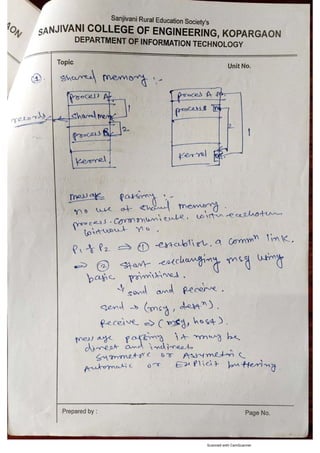 Sanjivani Rural Education Society's
SANJIVANI COLLEGE OF ENGINEERING, KOPARGAON
DEPARTMENT OF INFORMATION TECHNOLOGY
AON
Topic
Unit No.
shared memory :-
process A
process A
1
records
shared mem
process B
2
process B
2
1
kernel
kernel
message passing :-
no use of shared memory.
process communicate with
without no
P1 & P2 ⇒ ① establish a commn link.
⇒ ② start exchanging msg using
basic primitives.
send and Receive.
send → (msy, destn).
Receive ⇒ (msy, host).
message passing it may be
direct and indirect
Symmetric or Assymetric
Automatic or Explicit buffering.
Prepared by :
Page No.
Scanned with CamScanner